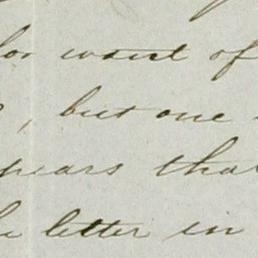 for want of
, but one
pears that
he letter in